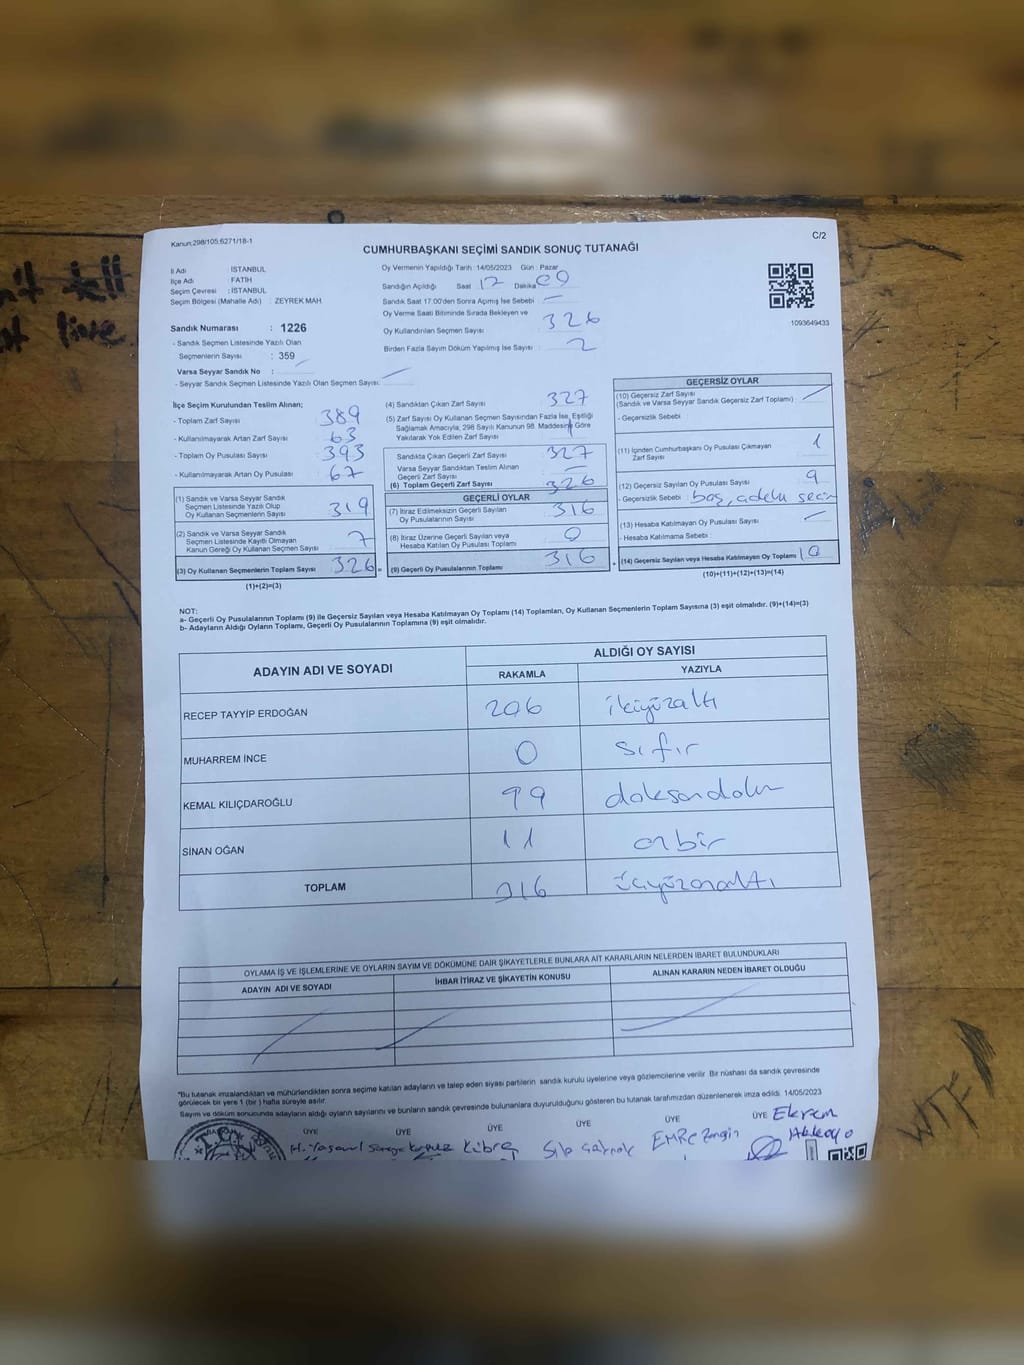 Kanun:298/105;6271/18-1
C/2
CUMHURBAŞKANI SEÇİMİ SANDIK SONUÇ TUTANAĞI
İl Adı : İSTANBUL
İlçe Adı : FATİH
Seçim Çevresi : İSTANBUL
Seçim Bölgesi (Mahalle Adı) : ZEYREK MAH.
Sandık Numarası : 1226
- Sandık Seçmen Listesinde Yazılı Olan
Seçmenlerin Sayısı : 359
Varsa Seyyar Sandık No :
- Seyyar Sandık Seçmen Listesinde Yazılı Olan Seçmen Sayısı:
Oy Vermenin Yapıldığı Tarih :14/05/2023 Gün : Pazar
Sandığın Açıldığı Saat 17 Dakika 09
Sandık Saat 17.00'den Sonra Açımış İse Sebebi : —
Oy Verme Saati Bitiminde Sırada Bekleyen ve
Oy Kullandırılan Seçmen Sayısı : 326
Birden Fazla Sayım Döküm Yapılmış İse Sayısı : 2
1093649433
İlçe Seçim Kurulundan Teslim Alınan;
- Toplam Zarf Sayısı 389
- Kullanılmayarak Artan Zarf Sayısı 63
- Toplam Oy Pusulası Sayısı 393
- Kullanılmayarak Artan Oy Pusulası 67
(1) Sandık ve Varsa Seyyar Sandık
Seçmen Listesinde Yazılı Olup
Oy Kullanan Seçmenlerin Sayısı 319
(2) Sandık ve Varsa Seyyar Sandık
Seçmen Listesinde Kayıtlı Olmayan
Kanun Gereği Oy Kullanan Seçmen Sayısı 7
(3) Oy Kullanan Seçmenlerin Toplam Sayısı 326 =
(1)+(2)=(3)
(4) Sandıktan Çıkan Zarf Sayısı 327
(5) Zarf Sayısı Oy Kullanan Seçmen Sayısından Fazla İse, Eşitliği
Sağlamak Amacıyla; 298 Sayılı Kanunun 98. Maddesine Göre
Yakılarak Yok Edilen Zarf Sayısı 1
Sandıkta Çıkan Geçerli Zarf Sayısı 327
Varsa Seyyar Sandıktan Teslim Alınan
Geçerli Zarf Sayısı —
(6) Toplam Geçerli Zarf Sayısı 326
GEÇERLİ OYLAR
(7) İtiraz Edilmeksizin Geçerli Sayılan
Oy Pusulalarının Sayısı 316
(8) İtiraz Üzerine Geçerli Sayılan veya
Hesaba Katılan Oy Pusulası Toplamı 0
(9) Geçerli Oy Pusulalarının Toplamı 316 +
GEÇERSİZ OYLAR
(10) Geçersiz Zarf Sayısı
(Sandık ve Varsa Seyyar Sandık Geçersiz Zarf Toplamı)
- Geçersizlik Sebebi
(11) İçinden Cumhurbaşkanı Oy Pusulası Çıkmayan
Zarf Sayısı 1
(12) Geçersiz Sayılan Oy Pusulası Sayısı 9
- Geçersizlik Sebebi boş,
(13) Hesaba Katılmayan Oy Pusulası Sayısı —
- Hesaba Katılmama Sebebi
(14) Geçersiz Sayılan veya Hesaba Katılmayan Oy Toplamı 10
(10)+(11)+(12)+(13)=(14)
NOT:
a- Geçerli Oy Pusulalarının Toplamı (9) ile Geçersiz Sayılan veya Hesaba Katılmayan Oy Toplamı (14) Toplamları, Oy Kullanan Seçmenlerin Toplam Sayısına (3) eşit olmalıdır. (9)+(14)=(3)
b- Adayların Aldığı Oyların Toplamı, Geçerli Oy Pusulalarının Toplamına (9) eşit olmalıdır.
ADAYIN ADI VE SOYADI
ALDIĞI OY SAYISI
RAKAMLA YAZIYLA
RECEP TAYYİP ERDOĞAN 206 ikiyüzaltı
MUHARREM İNCE 0 sıfır
KEMAL KILIÇDAROĞLU 99 doksandokuz
SİNAN OĞAN 11 onbir
TOPLAM 316 üçyüzonaltı
OYLAMA İŞ VE İŞLEMLERİNE VE OYLARIN SAYIM VE DÖKÜMÜNE DAİR ŞİKAYETLERLE BUNLARA AİT KARARLARIN NELERDEN İBARET BULUNDUKLARI
ADAYIN ADI VE SOYADI İHBAR İTİRAZ VE ŞİKAYETİN KONUSU ALINAN KARARIN NEDEN İBARET OLDUĞU
"Bu tutanak imzalandıktan ve mühürlendikten sonra seçime katılan adayların ve talep eden siyasi partilerin sandık kurulu üyelerine veya gözlemcilerine verilir. Bir nüshası da sandık çevresinde
görülecek bir yere 1 (bir) hafta süreyle asılır.
Sayım ve döküm sonucunda adayların aldığı oyların sayılarını ve bunların sandık çevresinde bulunanlara duyurulduğunu gösteren bu tutanak tarafımızdan düzenlenerek imza edildi. 14/05/2023
ÜYE ÜYE ÜYE ÜYE ÜYE ÜYE
Kübra EMRE Zengin Ekrem
WTF